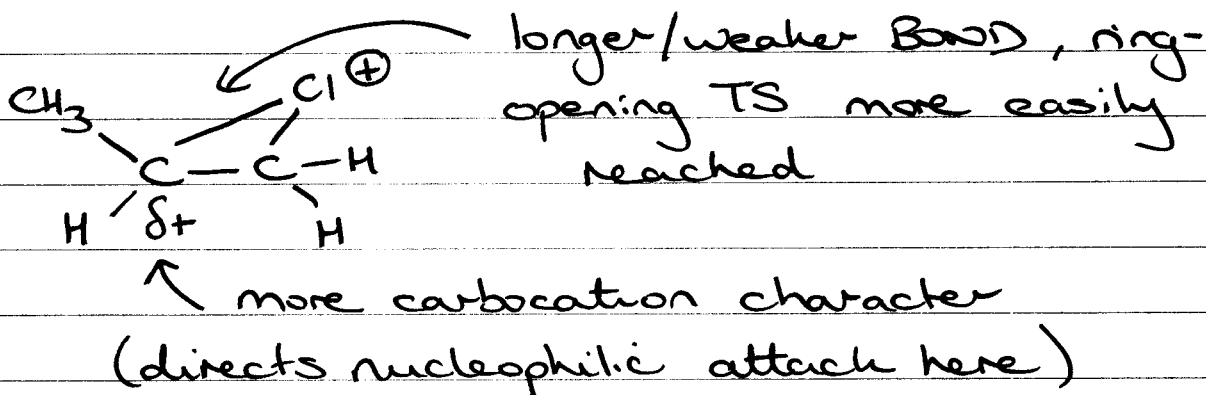 longer/weaker BOND, ring-
opening TS more easily
reached
CH3
Cl⊕
C — C — H
H δ+ H
more carbocation character
(directs nucleophilic attack here)